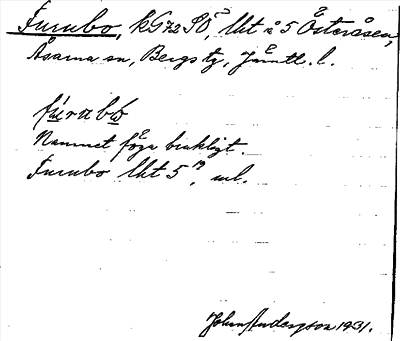 Furubo, kG72SO, lht å 5 Österåsen,
Åsarna sn, Bergs tg, Jämtl. l.
fúrabo
Namnet föga brukligt.
Furubo lht 5¹⁹, ml.
John Andersson 1931.